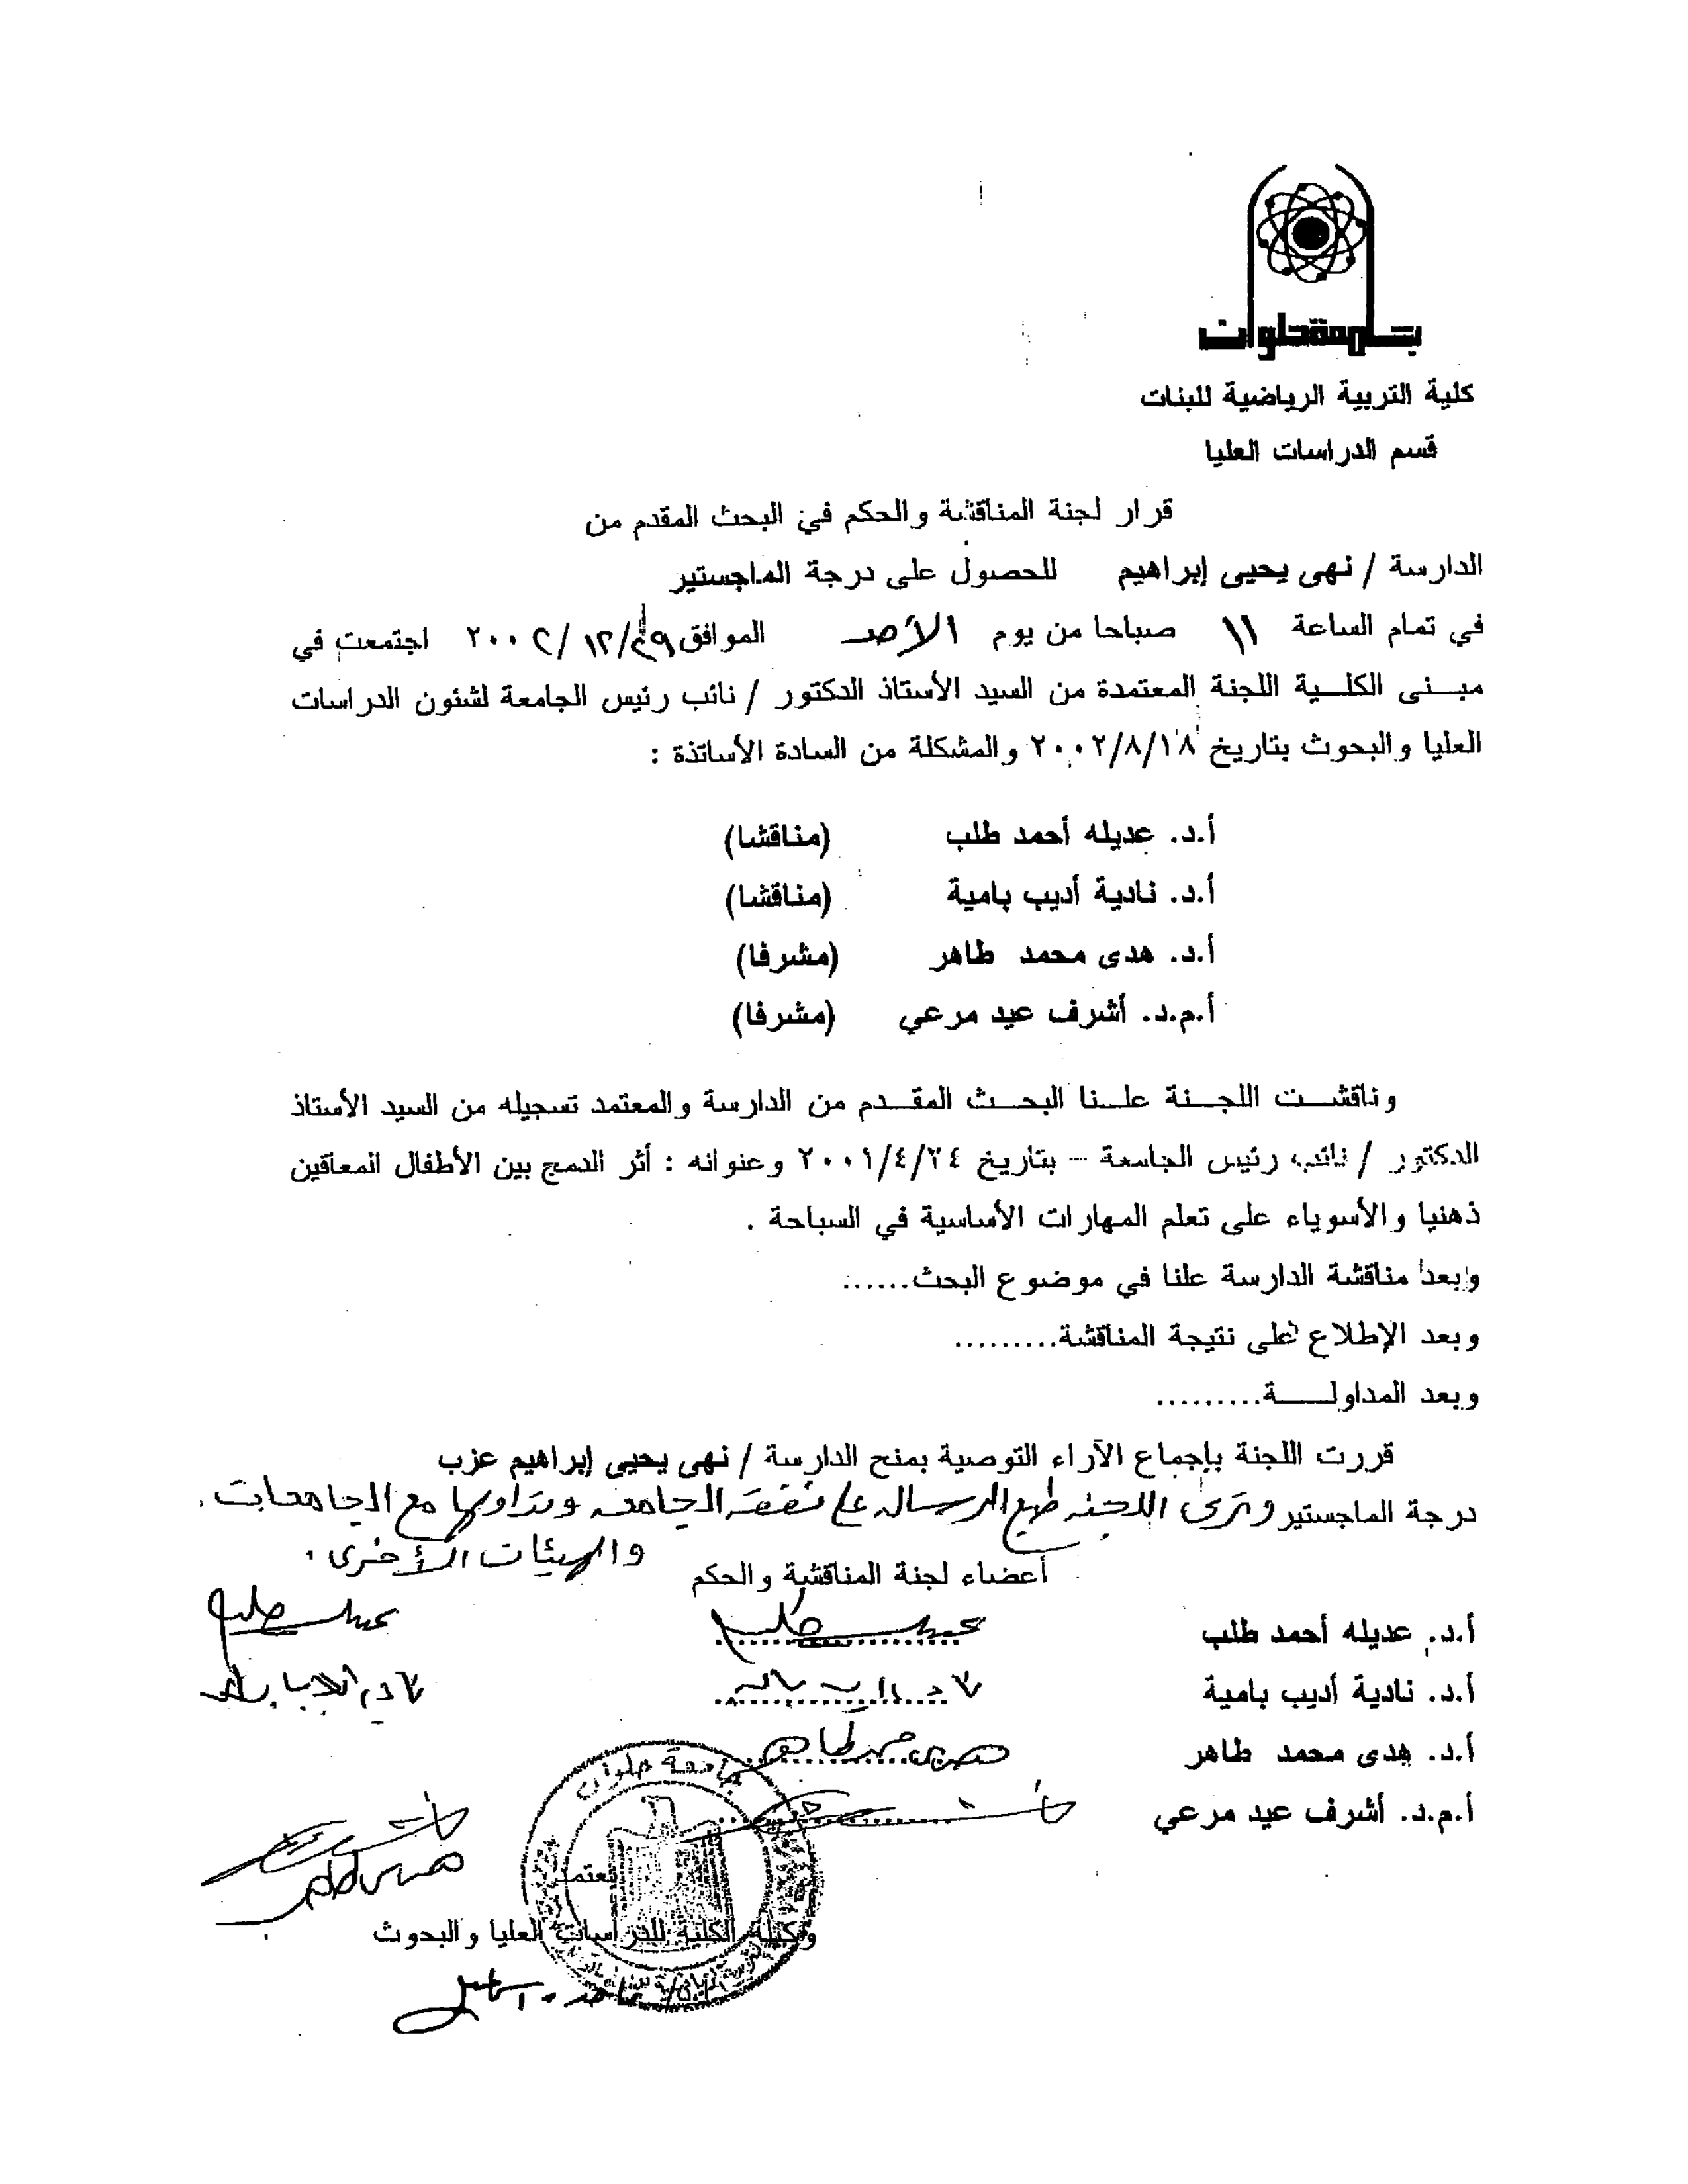 جامعة حلوان
كلية التربية الرياضية للبنات
قسم الدراسات العليا
قرار لجنة المناقشة والحكم في البحث المقدم من
الدارسة / نهى يحيى إبراهيم للحصول على درجة الماجستير
في تمام الساعة ١١ صباحا من يوم الأحد الموافق ٢٩/١٢/٢٠٠٢ اجتمعت في
مبنى الكلية اللجنة المعتمدة من السيد الأستاذ الدكتور / نائب رئيس الجامعة لشئون الدراسات
العليا والبحوث بتاريخ ٢٠٠٢/٨/١٨ والمشكلة من السادة الأساتذة :
أ.د. عديله أحمد طلب (مناقشا)
أ.د. نادية أديب بامية (مناقشا)
أ.د. هدى محمد طاهر (مشرفا)
أ.م.د. أشرف عيد مرعي (مشرفا)
وناقشت اللجنة علنا البحث المقدم من الدارسة والمعتمد تسجيله من السيد الأستاذ
الدكتور / نائب رئيس الجامعة – بتاريخ ٢٠٠١/٤/٢٤ وعنوانه : أثر الدمج بين الأطفال المعاقين
ذهنيا والأسوياء على تعلم المهارات الأساسية في السباحة .
وبعد مناقشة الدارسة علنا في موضوع البحث......
وبعد الإطلاع على نتيجة المناقشة.........
وبعد المداولة.........
قررت اللجنة بإجماع الآراء التوصية بمنح الدارسة / نهى يحيى إبراهيم عزب
درجة الماجستير وترى اللجنه طبع الرساله على نفقة الجامعه وتداولها مع الجامعات
والهيئات الأخرى .
أعضاء لجنة المناقشة والحكم
أ.د. عديله أحمد طلب
أ.د. نادية أديب بامية
أ.د. هدى محمد طاهر هدى محمد طاهر
أ.م.د. أشرف عيد مرعي
جامعة حلوان
يعتمد
وكيلة الكلية للدراسات العليا والبحوث